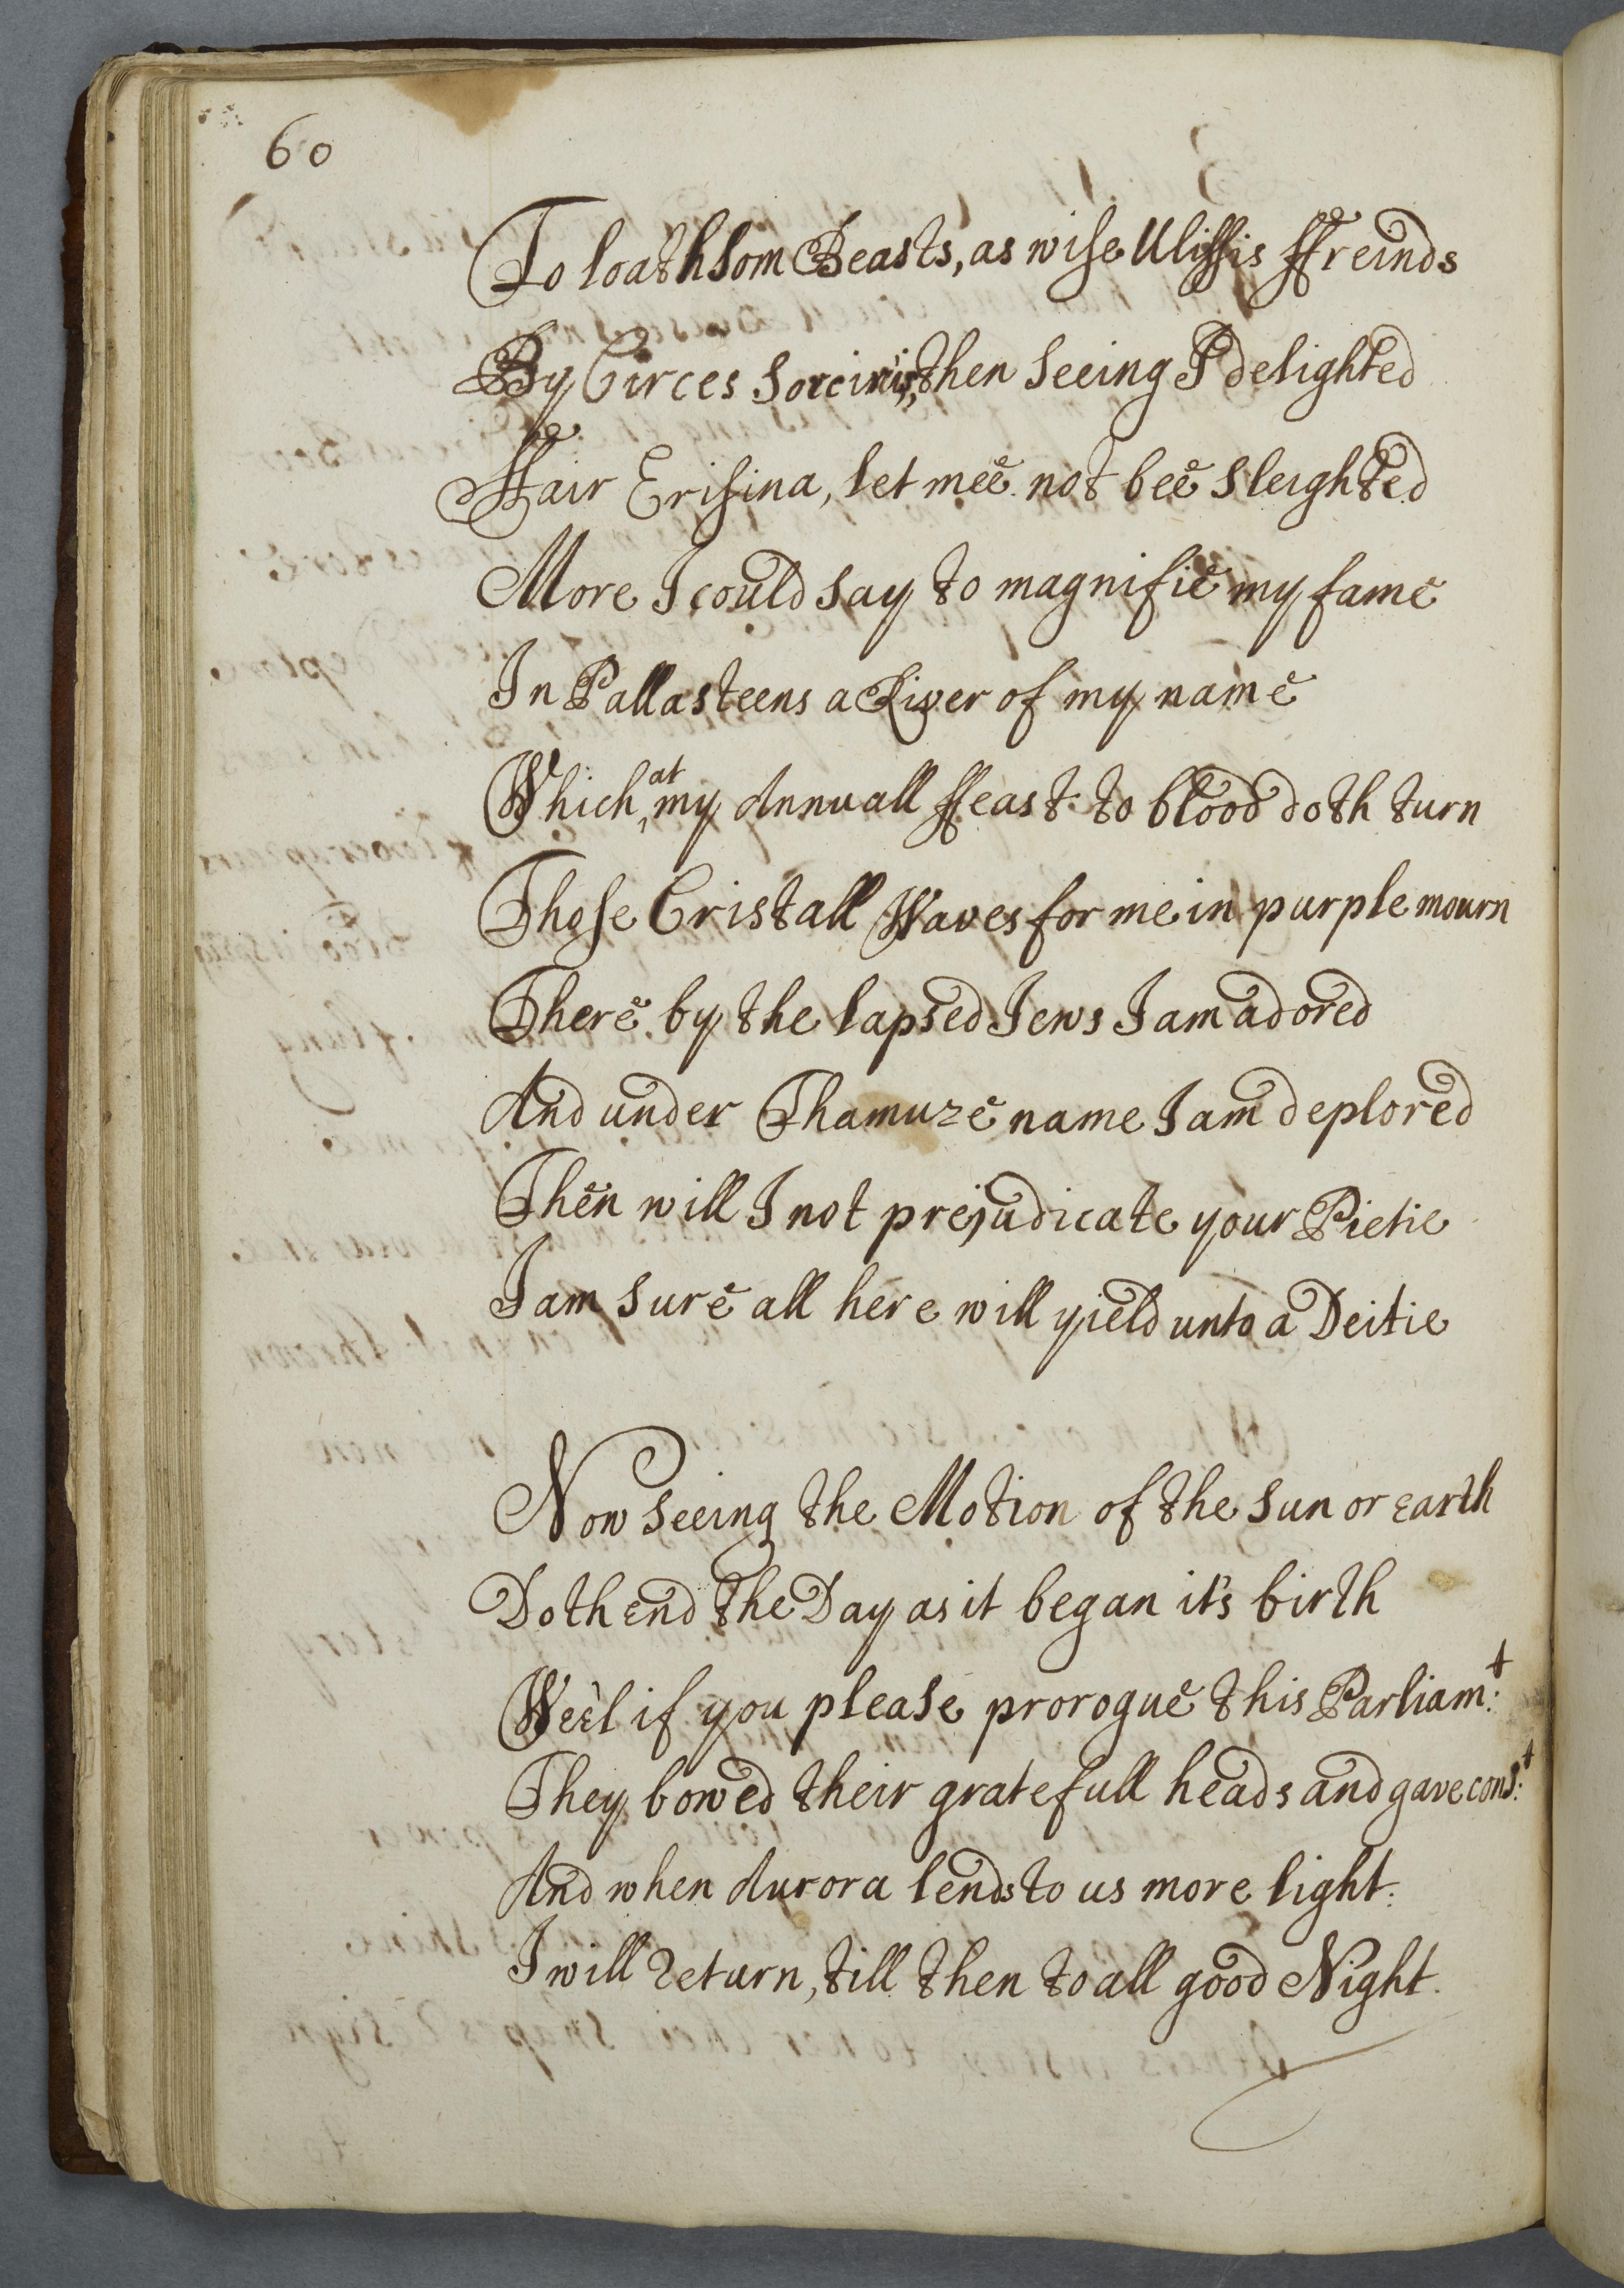 60
To loathsom Beasts, as wise Ulissis ffreinds
By Circes then seeing I delighted
ffair Erisina, let mee not bee sleighted
More I could say to magnifie my fame
In Pallasteens a River of my name
Which at my Annuall ffeast to blood doth turn
Those Cristall Waves for me in purple mourn
There by the lapsed Jews I am adored
And under Thamuze name I am deplored
Then will I not prejudicate your Pietie
I am sure all here will yield unto a Deitie
Now seeing the Motion of the Sun or Earth
Doth end the Day as it began it's birth
Wee'l if you please prorogue this Parliam:t
They bowed their gratefull heads and gave cons:t
And when Aurora lends to us more light.
I will return, till then to all good Night.